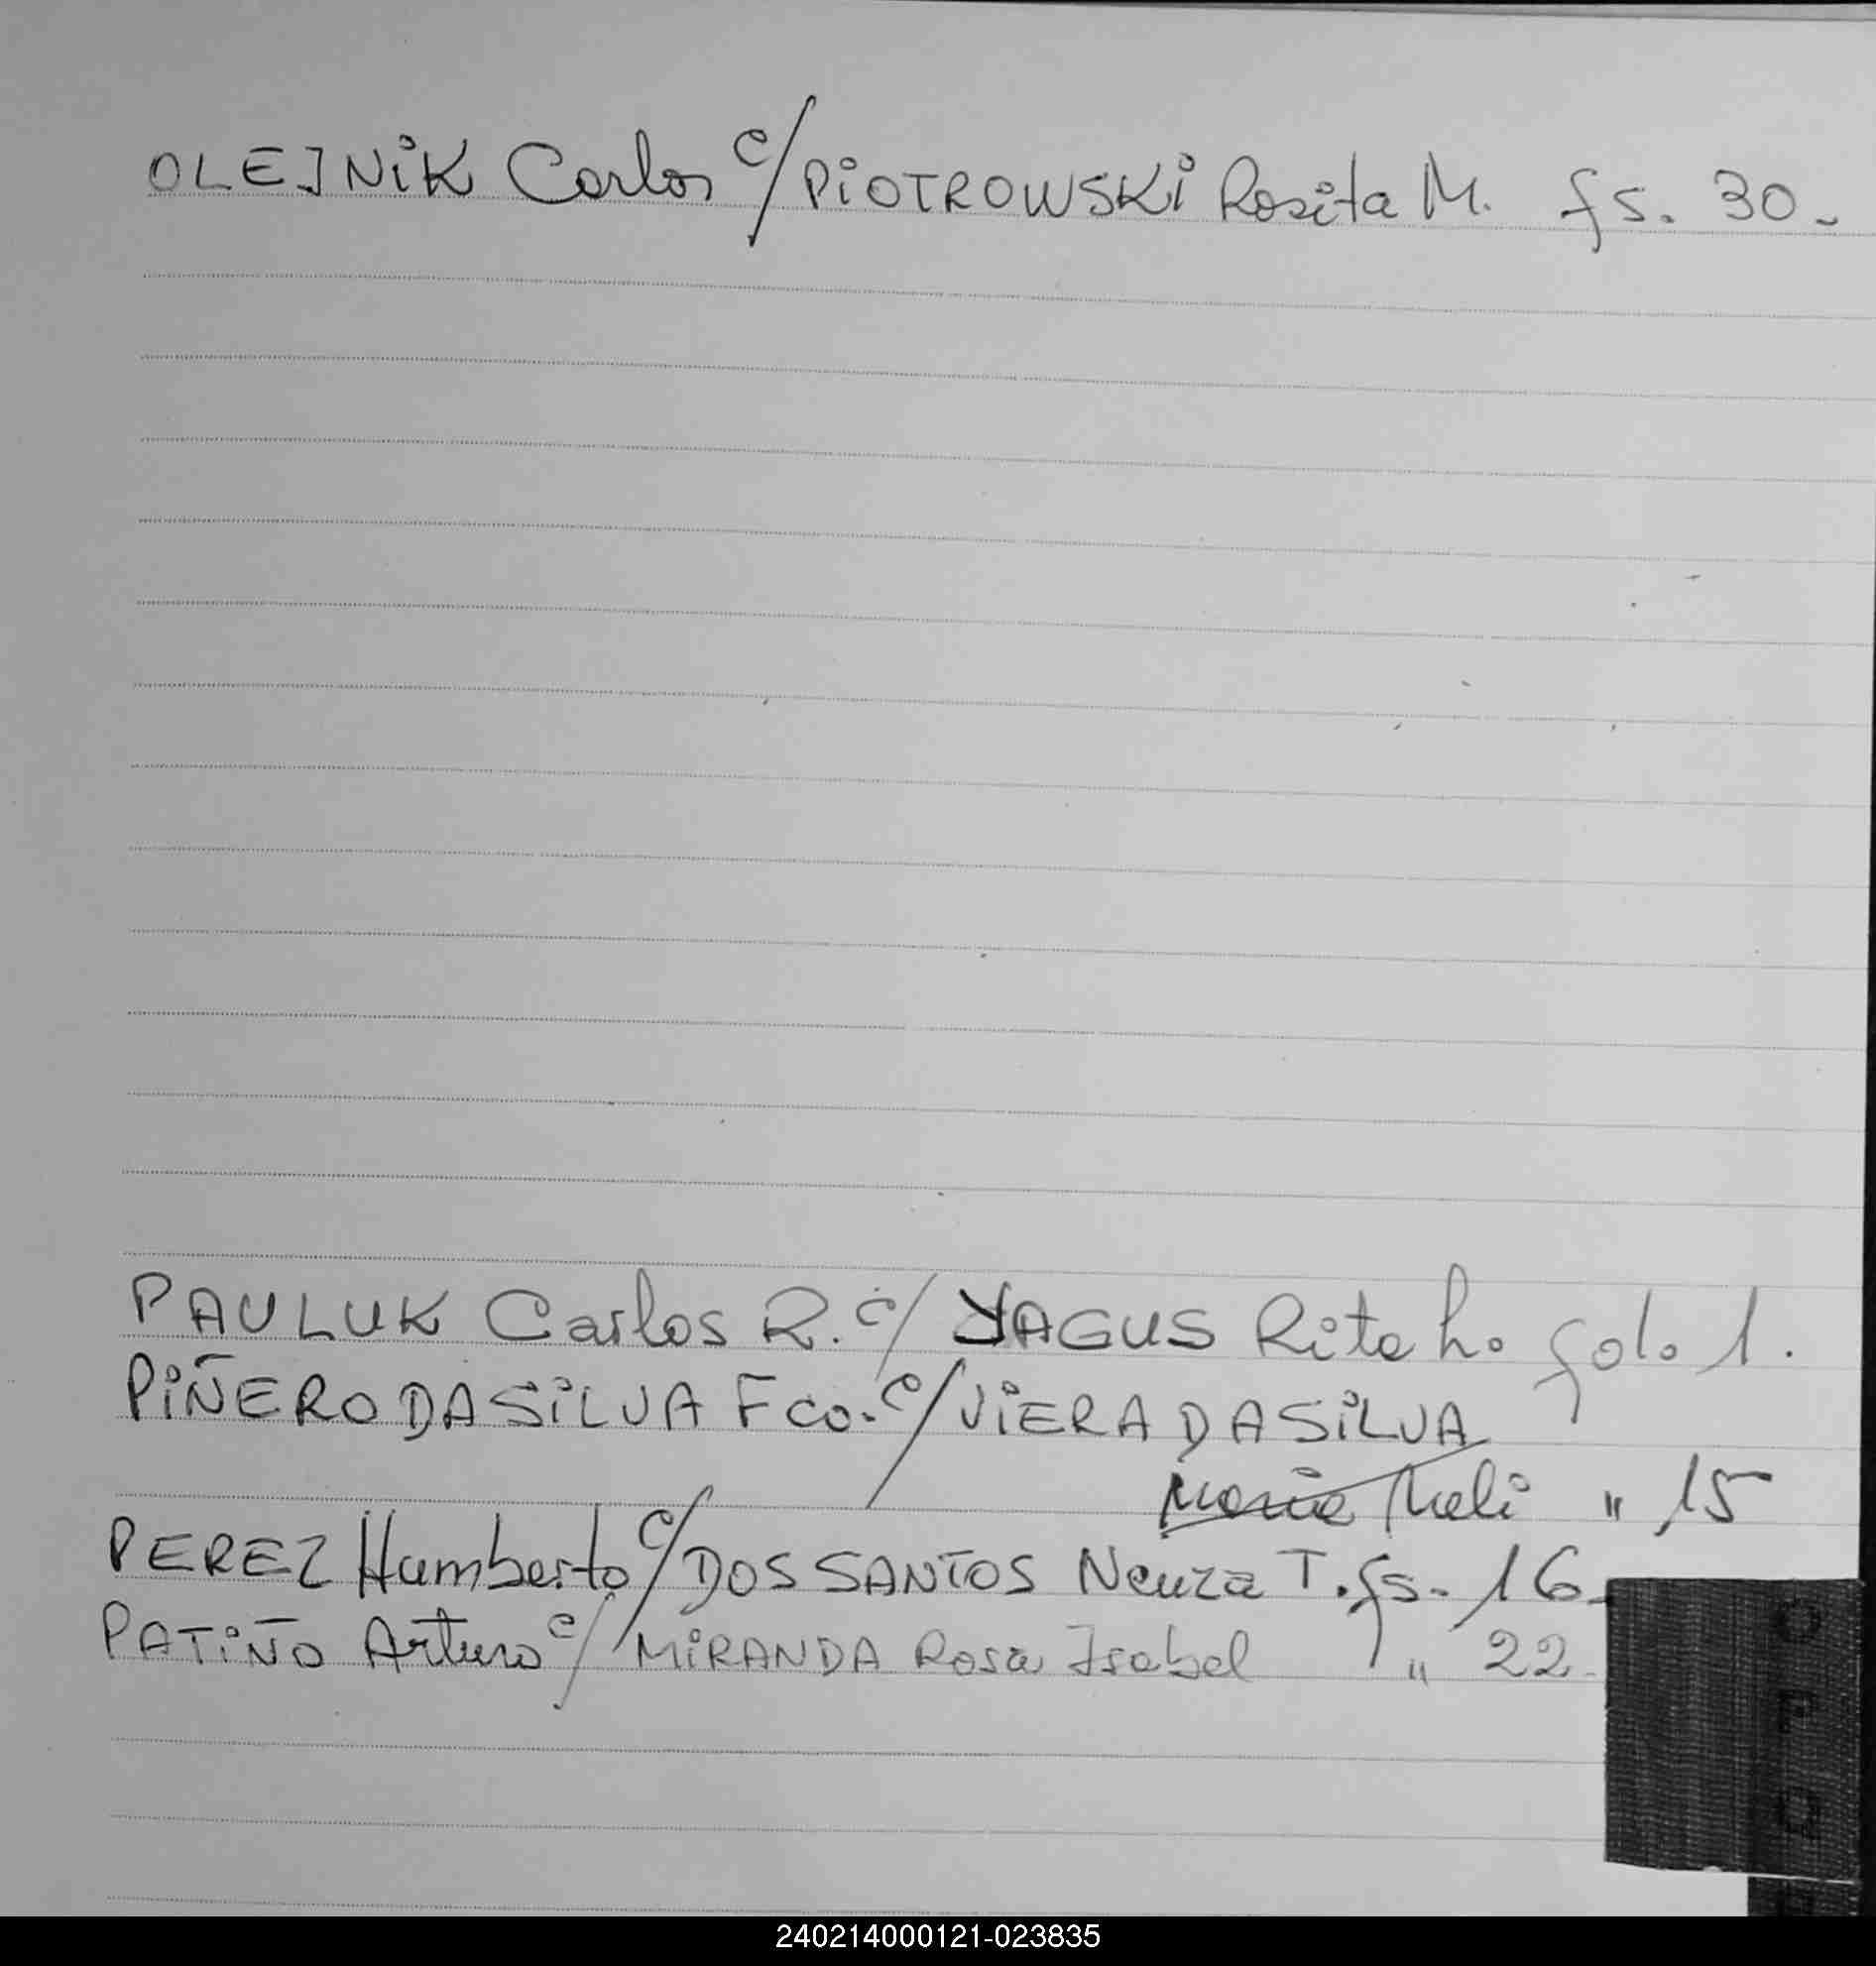 OLEJNiK Carlos c/ PiOTROWSKi Rosita M. fs. 30.-
PAULUK Carlos R. c/ YAGUS Rita L. fol. 1.
PiÑERO DA SiLVA Fco. c/ ViERA DA SiLVA
Maria Theli " 15
PEREZ Humberto c/ DOS SANTOS Neuza T. fs. 16-
PATiÑO Arturo c/ MiRANDA Rosa Isabel " 22-
O
P
Q
240214000121-023835